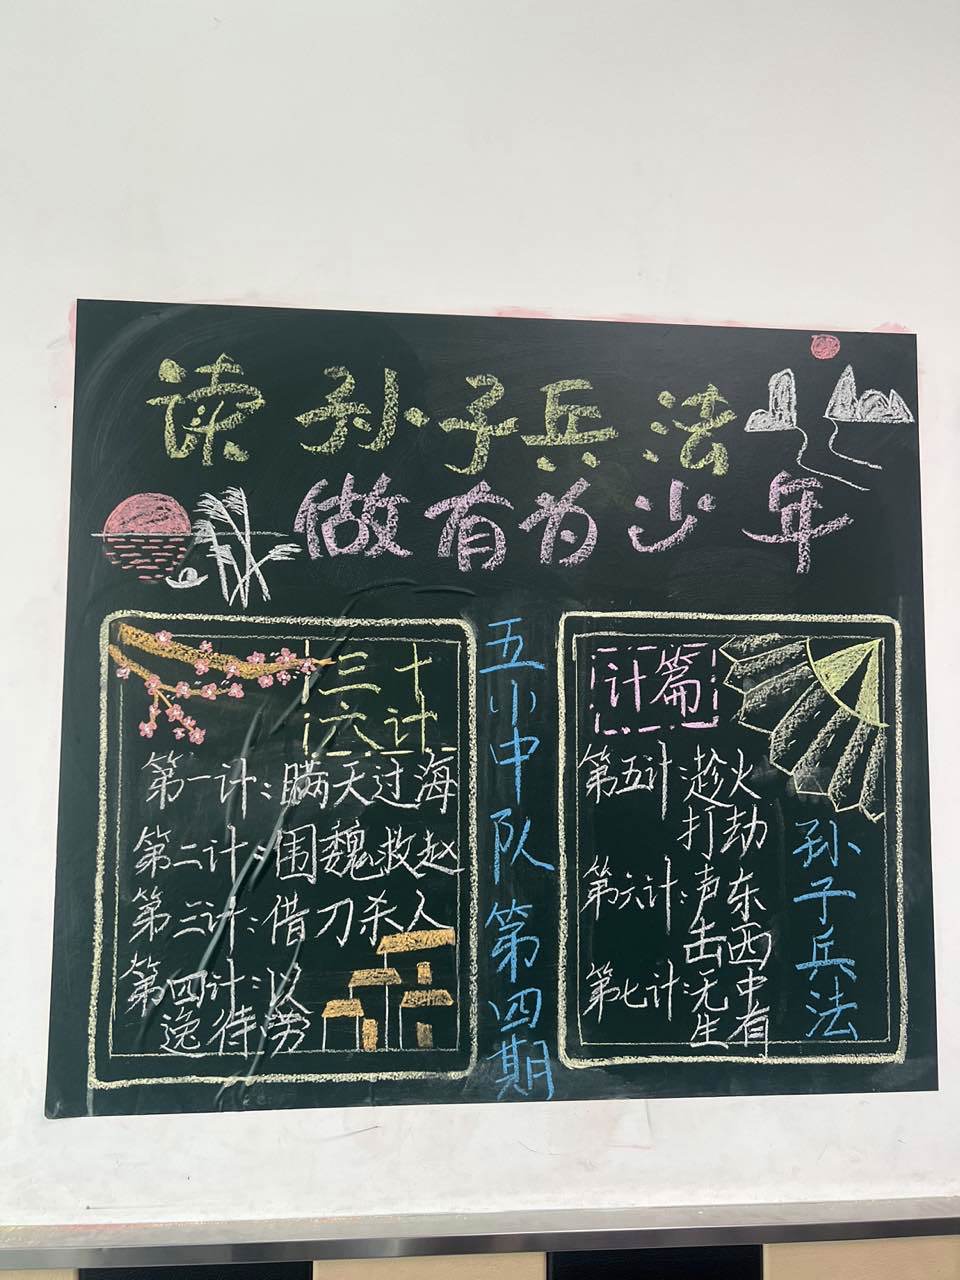 读孙子兵法
做有为少年
三十
六计
第一计:瞒天过海
第二计:围魏救赵
第三计:借刀杀人
第四计:以
逸待劳
五小中队第四期
计篇
第五计:趁火
打劫
第六计:声东
击西
第七计:无中
生有
孙子兵法